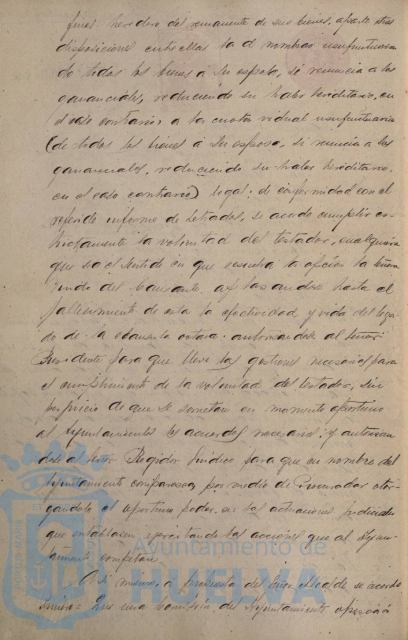 fines heredero del remanente de sus bienes, aparte otras
disposiciones entre ellas la d nombrar usufructuaria
de todos los bienes a su esposa, si renuncia a los
gananciales, reduciendo su haber hereditario, en
el caso contrario a la cuota vidual usufructuaria
(de todos los bienes a su esposa, si renuncia a los
gananciales, reduciendo su haber hereditario
en el caso contrario) legal: de conformidad con el
referido informe de Letrados, se acordó cumplir es-
trictamente la voluntad del testador, cualquiera
que sea el sentido en que resuelva la opción la
viuda del causante, aplazandose hasta el
fallecimiento de esta la efectividad y vida del lega
do de la clausula octava: autorizandose al Señor
Presidente para que lleve las gestiones necesarias para
el cumplimiento de la voluntad del testador, sin
perjuicio de que se sometan en momento oportuno
al Ayuntamiento los acuerdos necesarios; y autorizan
dose al señor Regidor Sindico para que en nombre del
Ayuntamiento comparezca, por medio de Procurador otor-
gandole el oportuno poder, en las actuaciones judiciales
que entablasen, ejercitando las acciones que al Ayun-
tamiento competan
Asi mismo, a propuesta del Señor Alcalde se acordó
Que una comisión del Ayuntamiento
Ayuntamiento de
HUELVA